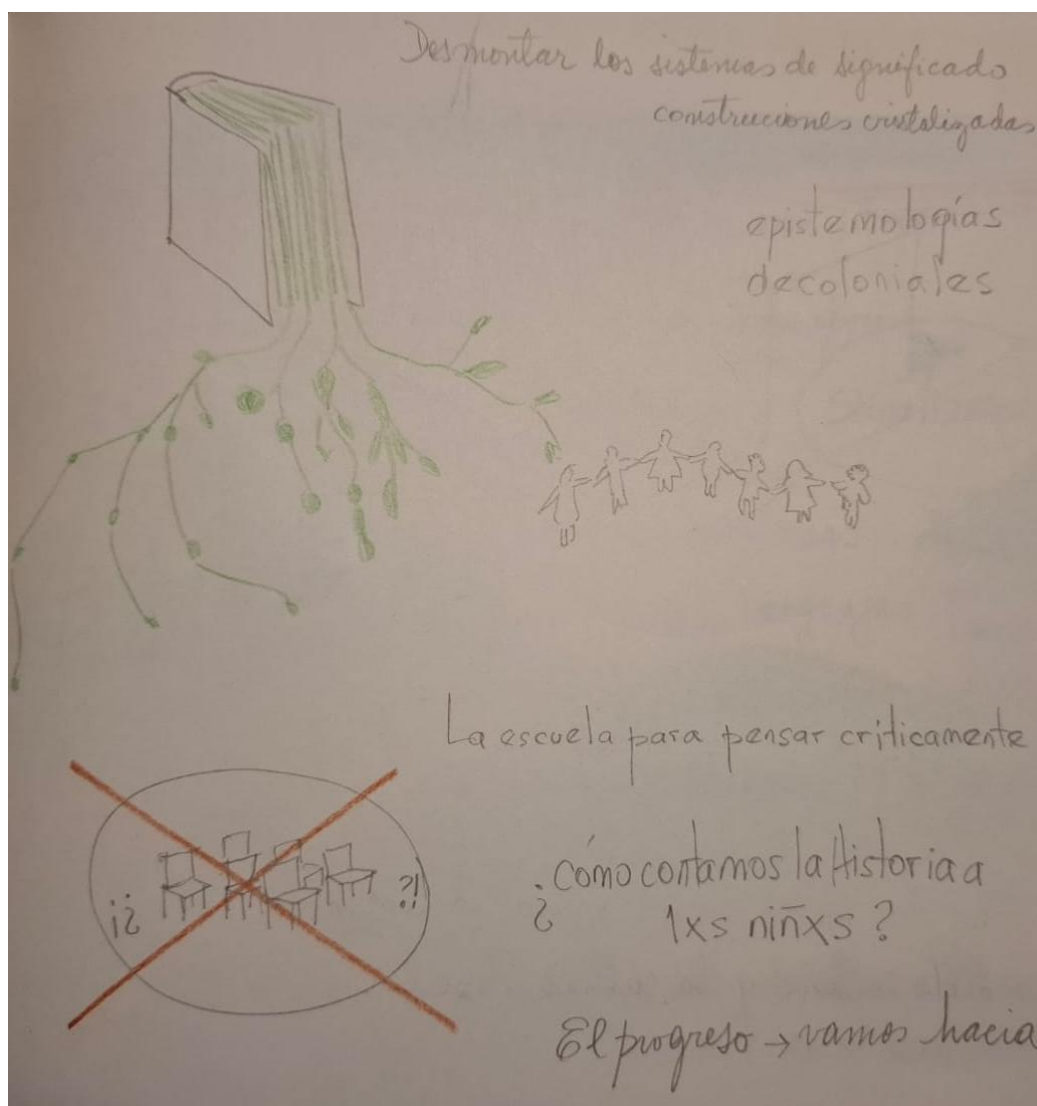 Desmontar los sistemas de significado
construcciones cristalizadas
epistemologías
decoloniales
La escuela para pensar criticamente
¡¿ ?!
¿cómo contamos la Historia a
lxs niñxs?
El progreso → vamos hacia